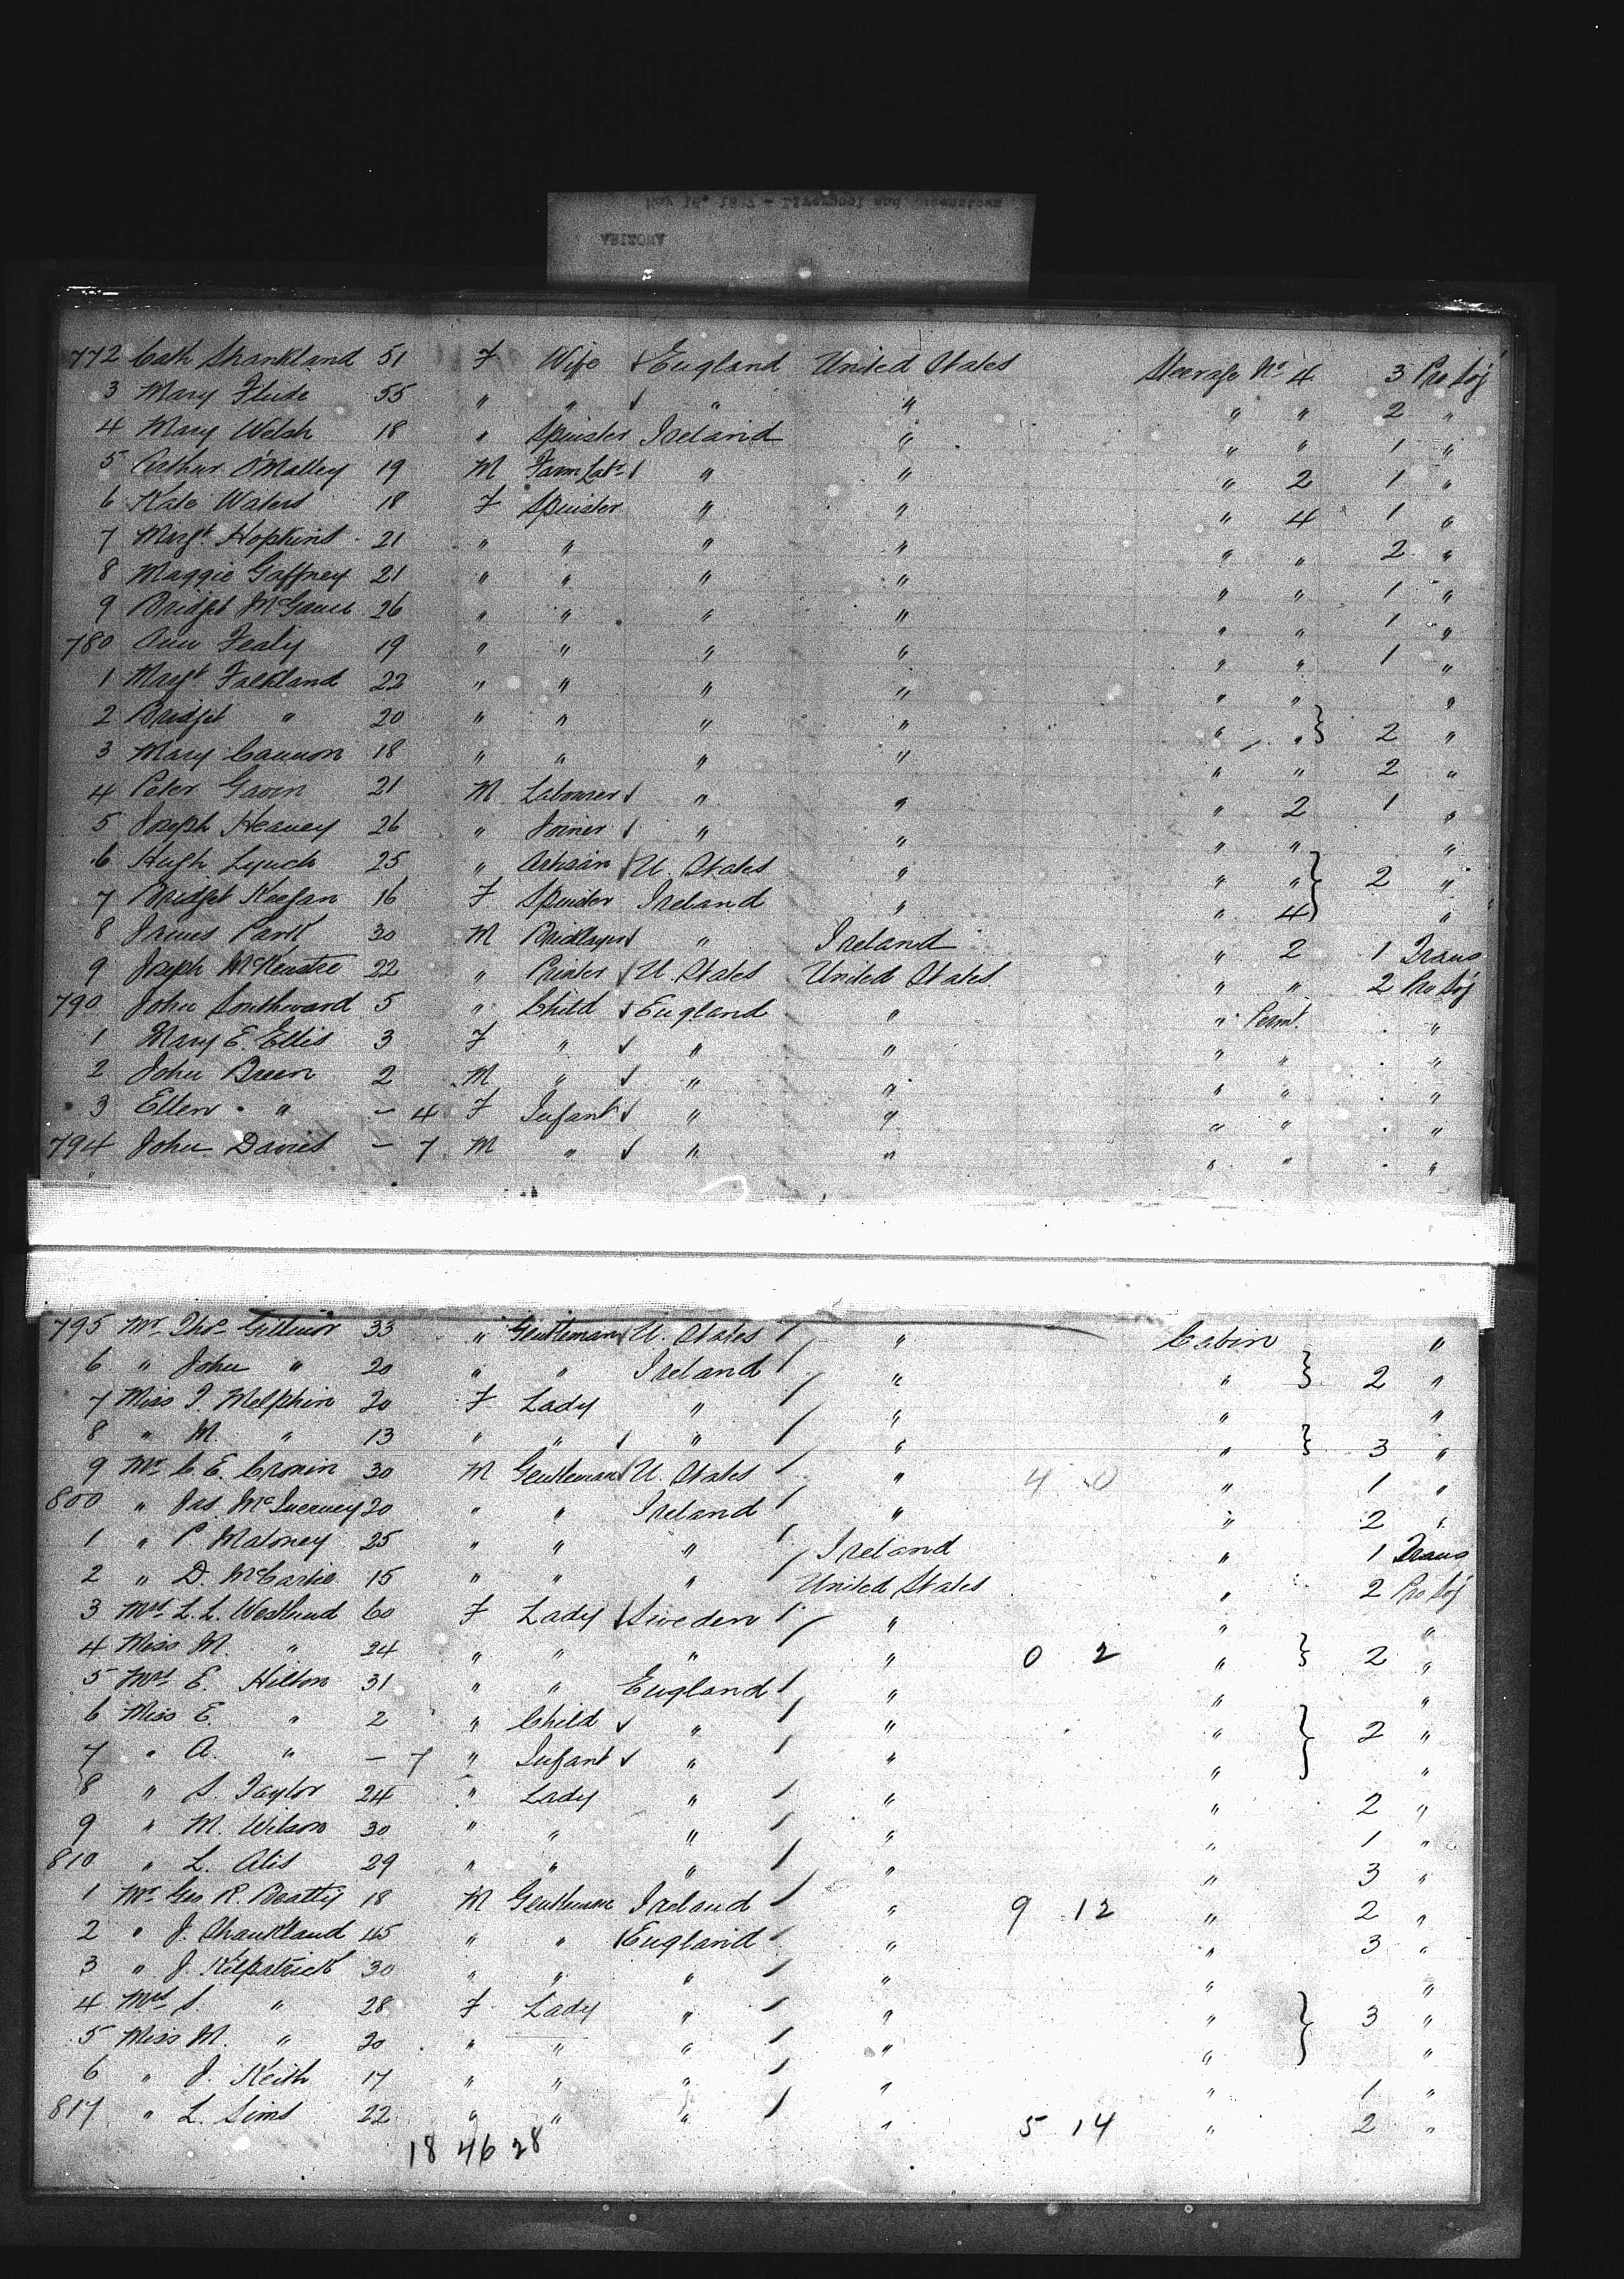 ARIZONA
772 Cath Shankland 51 F Wife England United States Steerage No 4 3 Pro Soj
3 Mary Flude 55 " " " " " " 2 "
4 Mary Welsh 18 " Spinster Ireland " " " 1 "
5 Arthur O'Malley 19 M Farm Labr " " " 2 1 "
6 Kate Waters 18 F Spinster " " " 4 1 "
7 Margt Hopkins 21 " " " " " " 2 "
8 Maggie Gaffney 21 " " " " " " 1 "
9 Bridget 26 " " " " " " 1 "
780 Ann Fealy 19 " " " " " " 1 "
1 Margt Falkland 22 " " " " " " "
2 Bridget " 20 " " " " " " 2 "
3 Mary Cannon 18 " " " " " " 2 "
4 Peter Gavin 21 M Labourer " " " 2 1 "
5 Joseph Heaney 26 " Joiner " " " " "
6 Hugh Lynch 25 " Artisan U. States " " " 2 "
7 Bridget Keegan 16 F Spinster Ireland " " 4 "
8 James Park 30 M Bricklayer " Ireland " 2 1 Trans
9 Joseph 22 " Printer U. States United States " " 2 Pro Soj
790 John Southward 5 " Child England " " Permt. "
1 Mary E. Ellis 3 F " " " " " "
2 John Breen 2 M " " " " " "
3 Ellen " - 4 F Infant " " " " "
794 John Davies - 7 M " " " " " "
795 Mr Thos 33 " Gentleman U. States " Cabin "
6 " John " 20 " " Ireland " " 2 "
7 Miss Melphin 20 F Lady " " " "
8 " M. " 13 " " " " " 3 "
9 Mr C. E. Cronin 30 M Gentleman U. States " 4 0 " 1 "
800 " Jas. McInerney 20 " " Ireland " " 2 "
1 " P. Maloney 25 " " " Ireland " 1 Trans
2 " D. McCartie 15 " " " United States " 2 Pro Soj
3 Mrs L. L. Westlund 60 F Lady Sweden " " "
4 Miss M. " 24 " " " " 0 2 " 2 "
5 Mrs E. Hilton 31 " " England " " "
6 Miss E. " 2 " Child " " " 2 "
7 " A. " - 7 " Infant " " " "
8 " S. Taylor 24 " Lady " " " 2 "
9 " M. Wilson 30 " " " " " 1 "
810 " L. 29 " " " " " 3 "
1 Mr Geo R. Beatty 18 M Gentleman Ireland " 9 12 " 2 "
2 " J. Shankland 45 " " England " " 3 "
3 " J. Kilpatrick 30 " " " " " "
4 Mrs S. " 28 F Lady " " " 3 "
5 Miss M. " 20 " " " " " "
6 " J. Keith 17 " " " " " 1 "
817 " L. Sims 22 " " " " 5 14 " 2 "
18 46 28